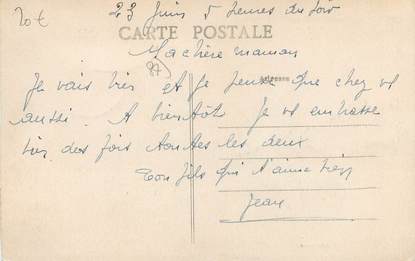 20 €
23 Juin 5 heures du soir
CARTE POSTALE
Ma chère maman
(87)
Adresse
Je vais bien et je pense que chez vous
aussi. A bientôt. Je vous embrasse
bien des fois toutes les deux
Ton fils qui t'aime bien
Jean